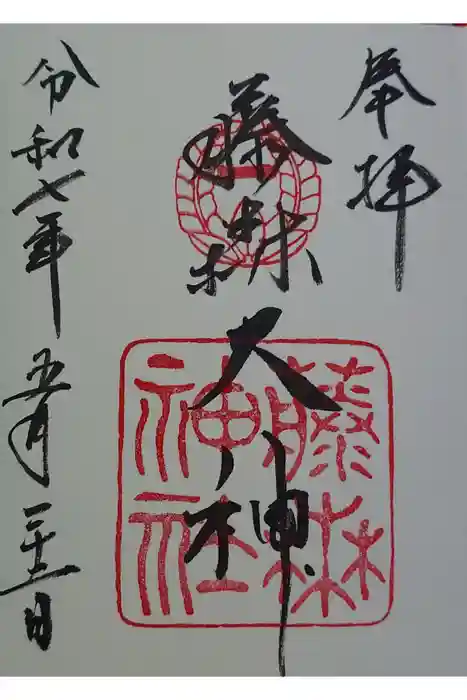 奉拝
藤森大神
藤森
神社
令和七年五月二十一日